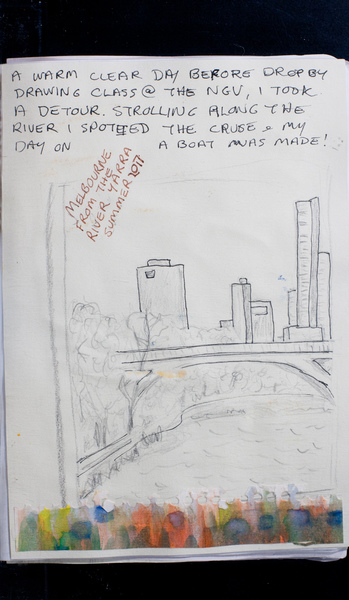 A WARM CLEAR DAY BEFORE DROP BY
DRAWING CLASS @ THE NGV, I TOOK
A DETOUR. STROLLING ALONG THE
RIVER I SPOTTED THE CRUSE & MY
DAY ON A BOAT WAS MADE!
MELBOURNE
FROM THE
RIVER YARRA
SUMMER 2017